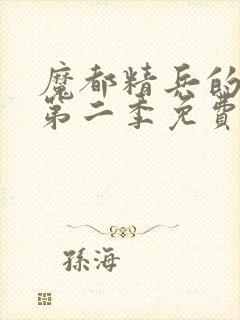 魔都精兵的
第二季免費
孫海